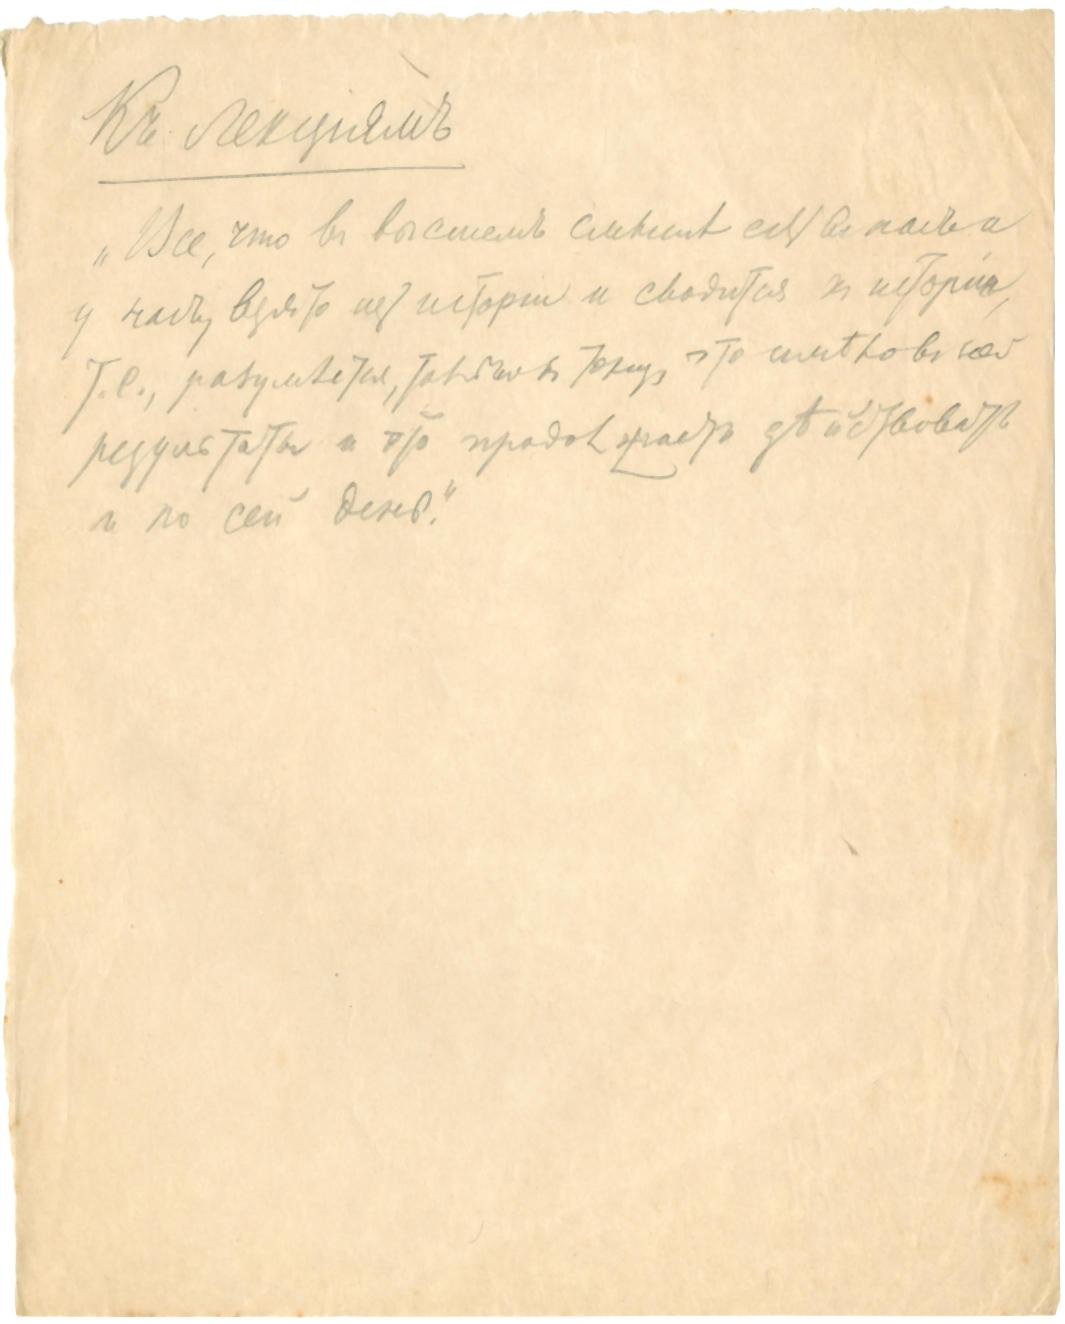 Къ лекціямъ
„Все, что въ высшемъ смыслѣ есть въ насъ и
у насъ, взято изъ исторіи и сводится къ исторіи,
т.е., разумѣется, только къ тому, что имѣло въ ней
результаты и что продолжаетъ дѣйствовать
и по сей день."